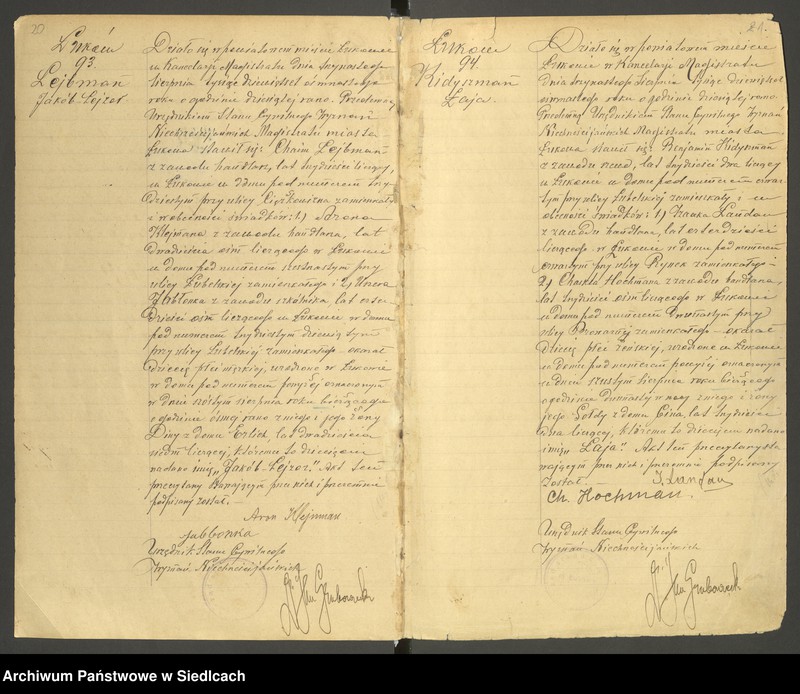 20
Łuków
93.
Lejbman
Jakób-Lejzor
Działo się w powiatowem mieście Łukowie
w Kancelarji Magistratu dnia trzynastego
sierpnia tysiąc dziewięćset ośmnastego
roku o godzinie dziesiątej rano. Przedemną
Urzędnikiem Stanu Cywilnego Wyznań
Niechrześcijańskich Magistratu miasta
Łukowa stawił się: Chaim Lejbman
z zawodu handlarz, lat trzydzieści liczący,
w Łukowie w domu pod numerem trzy-
dziestym przy ulicy zamieszkały
i w obecności świadków: 1) Arona
Klejmana z zawodu handlarza, lat
dwadzieścia ośm liczącego w Łukowie
w domu pod numerem szesnastym przy
ulicy Lubelskiej zamieszkałego i 2)
Jabłonka z zawodu szkolnika, lat
dzieści ośm liczącego w Łukowie w domu
pod numerem trzydziestym dziewiątym
przy ulicy Lubelskiej zamieszkałego - okazał
Dziecię płci męzkiej, urodzone w Łukowie
w domu pod numerem powyżej oznaczonym
w dniu szóstym sierpnia roku bieżącego
o godzinie ósmej rano z niego i jego żony
Diny z domu Erlich, lat dwadzieścia
siedm liczącej, któremu to dziecięciu
nadano imię „Jakób-Lejzor." Akt ten
przeczytany Stawającym przez nich i przezemnie
podpisany został. —
Aron Klejnman
Jabłonka
Urzędnik Stanu Cywilnego
Wyznań Niechrześcijańskich
21.
Łuków
94.
Kidyszman
Łaja.
Działo się w powiatowem mieście
Łukowie w Kancelarji Magistratu
dnia trzynastego sierpnia tysiąc dziewięćset
ośmnastego roku o godzinie dziesiątej rano.
Przedemną Urzędnikiem Stanu Cywilnego Wyznań
Niechrześcijańskich Magistratu miasta
Łukowa stawił się: Benjamin Kidyszman
z zawodu lat trzydzieści dwa liczący
w Łukowie w domu pod numerem
przy ulicy Lubelskiej zamieszkały i w
obecności świadków: 1) Landau
z zawodu handlarza, lat czterdzieści
liczącego w Łukowie w domu pod numerem
ósmym przy ulicy Rynek zamieszkałego i
2) Hochmana z zawodu handlarza,
lat trzydzieści ośm liczącego w Łukowie
w domu pod numerem dwunastym przy
ulicy zamieszkałego - okazał
Dziecię płci żeńskiej, urodzone w Łukowie
w domu pod numerem powyżej oznaczonym
w dniu szóstym sierpnia roku bieżącego
o godzinie dwunastej w nocy z niego i żony
jego z domu lat trzydzieści
dwa liczącej, któremu to dziecięciu nadano
imię „Łaja". Akt ten przeczytany sta-
wającym przez nich i przezemnie podpisany
został. —
Landau
Ch. Hochman.
Urzędnik Stanu Cywilnego
Wyznań Niechrześcijańskich
Archiwum Państwowe w Siedlcach